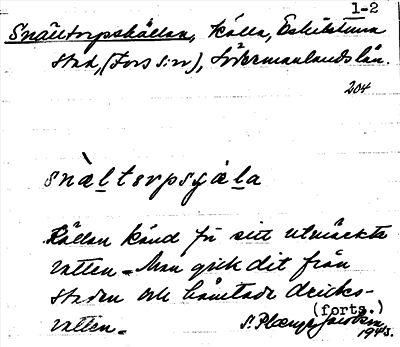 1-2
Snältorpskällan, källa, Eskilstuna
stad, (Fors s:n), Södermanlands län.
204
snàltorpsçäla
Källan känd för sitt utmärkta
vatten. Man gick dit från
staden och hämtade dricks-
(forts.)
vatten.
1945.